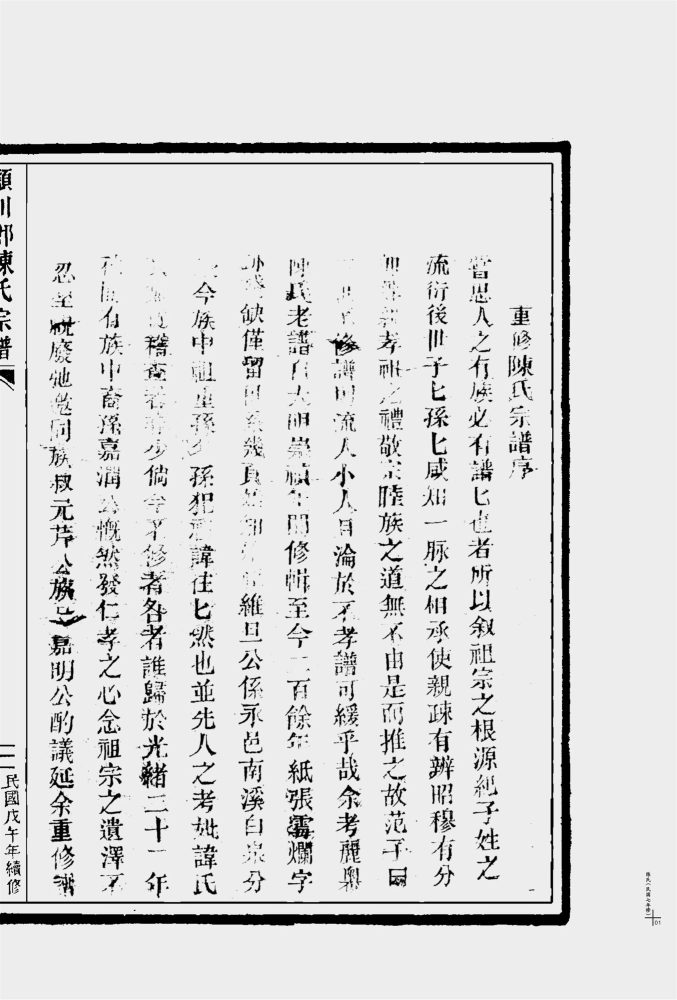 重修陳氏宗譜序
嘗思人之有族必有譜匕也者所以敘祖宗之根源紀子姓之
流衍後世子匕孫匕咸知一脉之相承使親疎有辨昭穆有分
孝祖之禮敬宗陸族之道無不由是而推之故范子曰
三世不修譜則流入小人自淪於不孝譜可緩乎哉余考麗奧
陳氏老譜自大明崇禎年間修輯至今二百餘年紙張霉爛字
缺僅留世系幾頁維旦公係永邑南溪白泉分
今族中祖重孫孫犯祖諱往匕然也並先人之考妣諱氏
稽查者少倘今不修者各者誰歸於光緒二十一年
有族中裔孫嘉潤公慨然發仁孝之心念祖宗之遺澤不
忍至廢弛邀同族叔元芹公族嘉明公酌議延余重修譜
潁川郡陳氏宗譜
一
民國戊午年續修
陳氏（民國七年修）
01